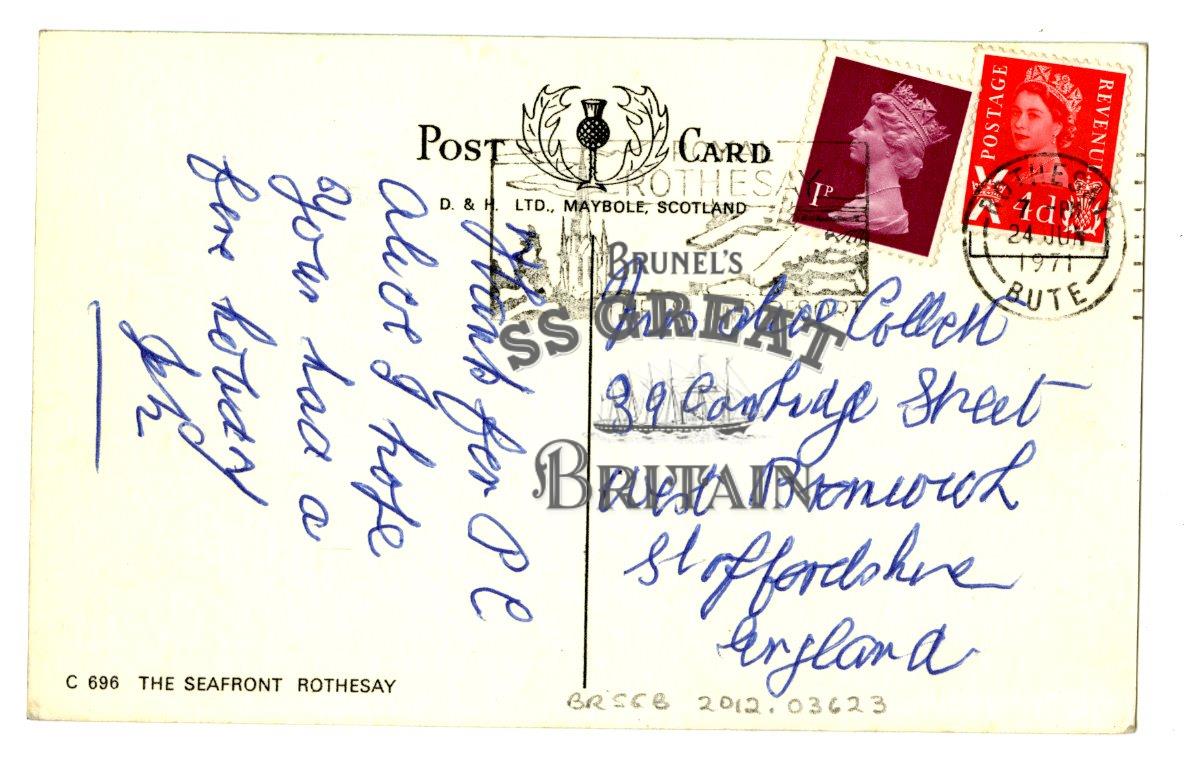 POST CARD
D. & H. LTD., MAYBOLE, SCOTLAND
ROTHESAY
1P
POSTAGE
REVENUE
4d
ROTHESAY
24 JUN
1971
BUTE
BRUNEL'S
SS GREAT
BRITAIN
Thanks for P C
Alice I hope
you had a
fine
Alice Collett
39 Cambridge Street
West Bromwich
Staffordshire
England
C 696 THE SEAFRONT ROTHESAY
BRSGB 2012.03623